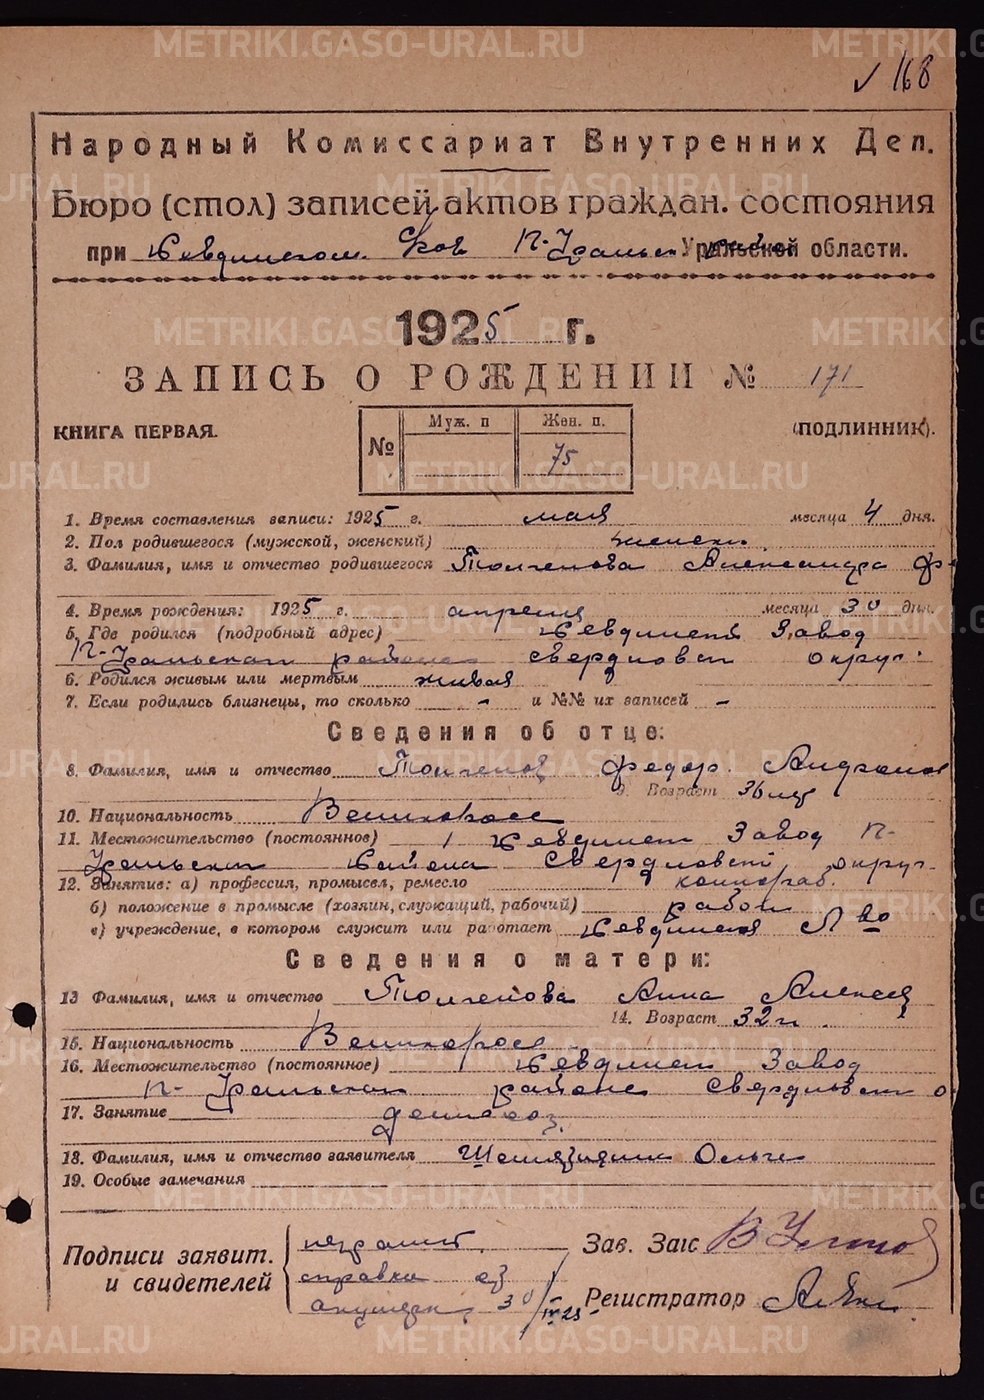 ✓ 168
Народный Комиссариат Внутренних Дел.
Бюро (стол) записей актов граждан. состояния
при Невдинском П-Уральск Уральской области.
1925 г.
ЗАПИСЬ О РОЖДЕНИИ № 171
КНИГА ПЕРВАЯ.
№ Муж. п Жен. п.
75
(ПОДЛИННИК).
1. Время составления записи: 1925 г. мая месяца 4 дня.
2. Пол родившегося (мужской, женский) женск.
3. Фамилия, имя и отчество родившегося Толченова Александра Ф-
4. Время рождения: 1925 г. апреля месяца 30 дня.
5. Где родился (подробный адрес) Завод
П-Уральская района Свердловск округ.
6. Родился живым или мертвым живая
7. Если родились близнецы, то сколько - и №№ их записей -
Сведения об отце:
8. Фамилия, имя и отчество Толченов Федор
9. Возраст 36 лет
10. Национальность Великоросс
11. Местожительство (постоянное) Завод П-
Уральский района Свердловск округ.
12. Занятие: а) профессия, промысел, ремесло
б) положение в промысле (хозяин, служащий, рабочий) рабоч
в) учреждение, в котором служит или работает
Сведения о матери:
13 Фамилия, имя и отчество Толченова Анна Алексеев
14. Возраст 32 г.
15. Национальность Великоросс
16. Местожительство (постоянное) Завод
П-Уральская района Свердловск о
17. Занятие домхоз.
18. Фамилия, имя и отчество заявителя Ольга
19. Особые замечания
Подписи заявит. и свидетелей
неграмот.
справка от
акушерк. 30/IV-25
Зав. Загс
Регистратор
METRIKI.GASO-URAL.RU